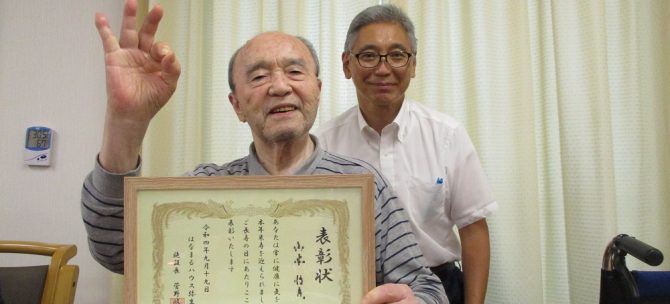 表彰状
あなたは常に健康に意を
本年米寿を迎えられまし
ご長寿の日にあたりここ
表彰いたします
令和四年九月十九日
はなまるハウス弥生
施設長 菅野